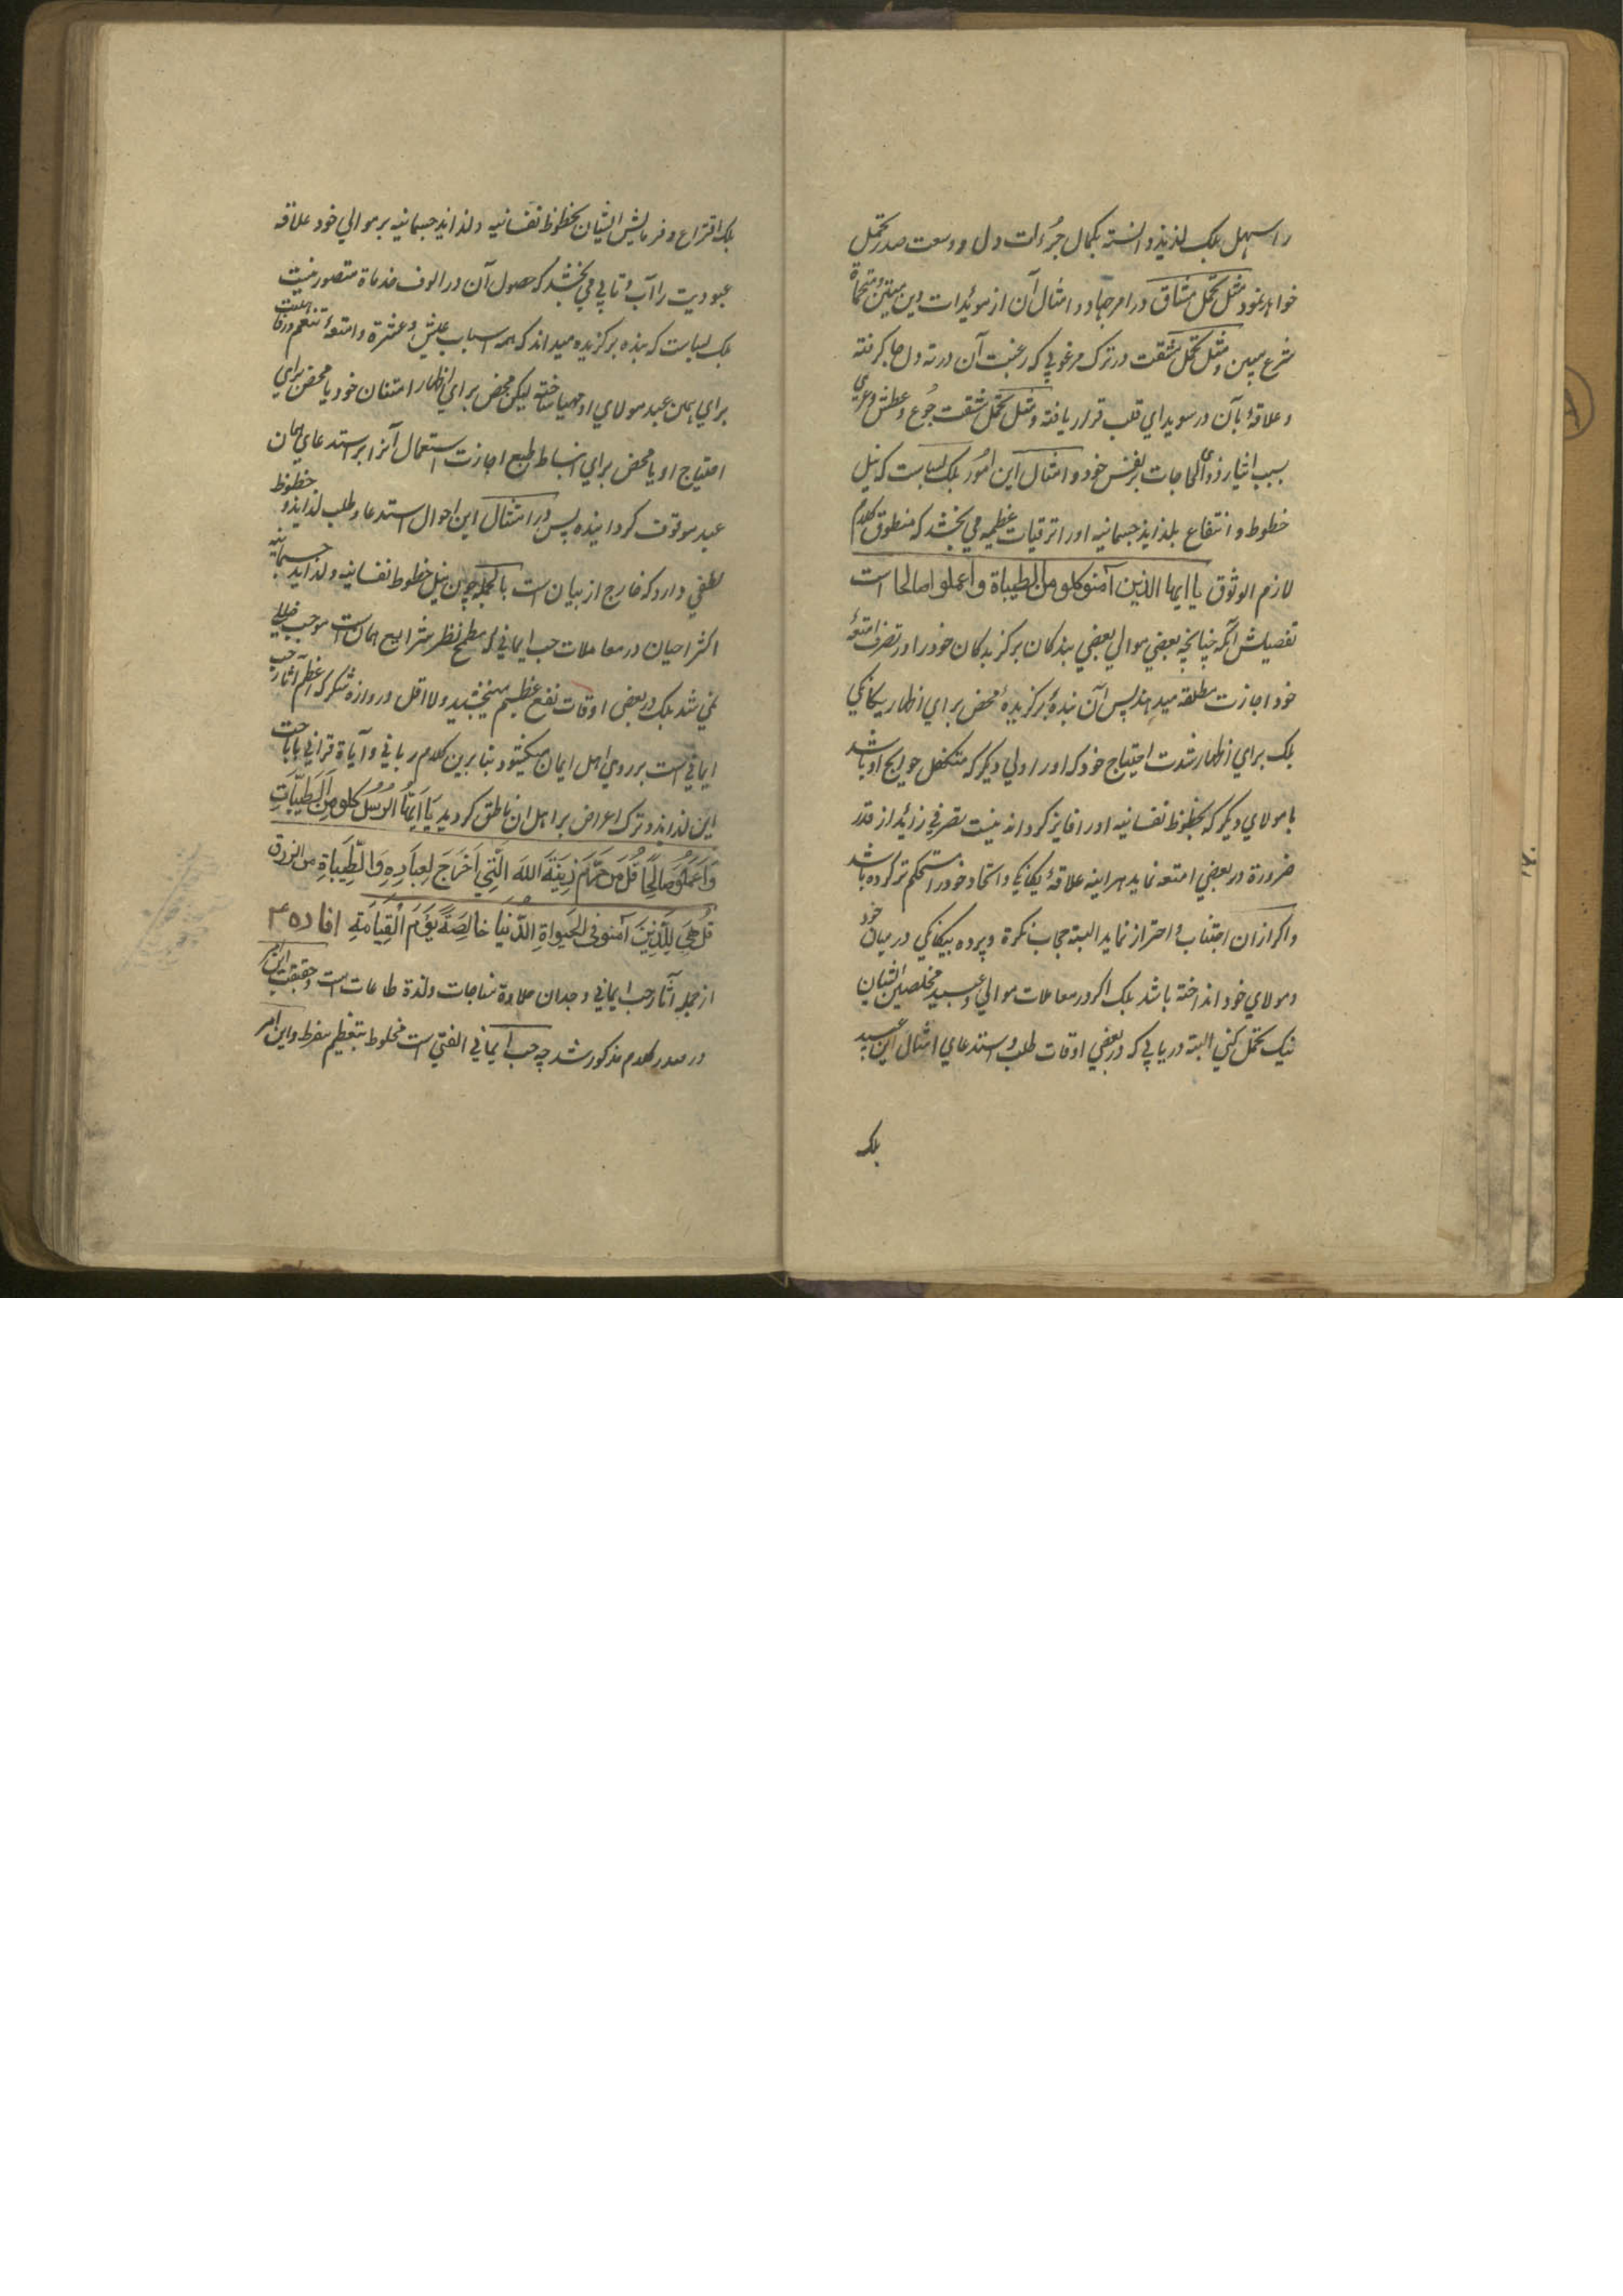 را سهل بلک لذیذ دانسته بکمال جرُءات دل و وسعت صدر تحمل
خواهد نمود مثل تحمل مشاق در امر جهاد و امثال آن از مویٔدات دین متین و متحماة
شرع مبین و مثل تحمل مشقت در ترک مرغوبي که رغبت آن در ته دل جا کرفته
و علاقهٔ بآن در سویداي قلب قرار یافته و مثل تحمل مشقت جُوع و عطش و عري
بسبب ایثار ذوي الحاجات بر نفس خود و امثال این امُور بلک بساست که نیل
حظوظ و انتفاع بلذایذ جسمانیه او را ترقیات عظیمه مي بخشد که منطوق کلام
لازم الوثوق یا ایها الذین آمنو کلو من الطیباة و اعملوا صالحا است
تفصیلش آنکه چنانچه بعضي موالي بعضي بندکان برکزیدکان خود را در تصرف امتعهٔ
خود اجازت مطلقه میدهند پس آن بندهٔ برکزیدهٔ محض براي اظهار یکانکي
بلک براي اظهار شدت احتیاج خود که او را ولي دیکر که متکفل حوایج او باشد
یا مولاي دیکر که بحظوظ نفسانیه او را فایز کرداند نیست تصرفي زایٔد از قدر
ضرورة در بعضي امتعه نماید هر اینه علاقهٔ یکانکي و اتحاد خود را مستحکم تر کرده باشد
و اکر از ان اجتناب و احتراز نماید البته حجاب نکرة و پرده بیکانکي در میان خود
و مولاي خود انداخته باشد بلک اکر در معاملات موالي و عبید مخلصین ایشان
نیک تحمل کني البته دریابي که در بعضي اوقات طلب و استدعاي امثال این عبید
بلک
بلک اقتراع و فرمایش ایشان بحظوظ نفسانیه و لذایذ جسمانیه بر موالي خود علاقه
عبودیت را آب و تابي مي بخشد که حصول آن در الوف خدماة متصور نیست
بلک بساست که بنده برکزیده میداند که همه اسباب عیش و عشرة و امتعهٔ تنعم و رفاهیت
براي همین عبد مولاي او مهیا ساخته لیکن محض براي اظهار امتنان خود یا محض براي
احتیاج او یا محض براي انبساط طبع اجازت استعمال آنرا بر استدعاي همان
عبد موقوف کردانیده پس در امثال این احوال استدعا و طلب لذایذ و حظوظ
لطفي دارد که خارج از بیان است بالجمله چون نیل حظوظ نفسانیه و لذاید جسمانیه
اکثر احیان در معاملات حب ایماني که مطمح نظر شرایع همان است موجب خللي
نمي شد بلک در بعضي اوقات نفع عظیم میبخشید و لا اقل دروازهٔ شکر که اعظم آثار حب
ایماني است بر روي اهل ایمان میکشود بنا برین کلام رباني و آیاة قراني باباحت
این لذایذ و ترک اعراض بر اهل ان ناطق کردید یَا اَیُّهَا الرُسُل کلو مِنَ الطَیِّبَاتِ
وَ اَعمَلُوُ صَالِحًا قُل مَن حَرَّمَ زِینَةَ اللهَ الَّتِي اَخَرَجَ لِعِبَادِهِ وَ الطَّیِبَاةِ من الرزق
قُل هِيَ لِلَّذِینَ آمنو في الحَیواةِ الدُّنیَا خالِصَةً یَوَمَ الْقِیَامَةِ افاده ۳
از جمله آثار حب ایماني وجدان حلاوة مناجات و لذة طاعات است و حقیقت این امر
در صدر کلام مذکور شد چه حب ایماني الفتي است مخلوط بتعظیم مفرط و این امر